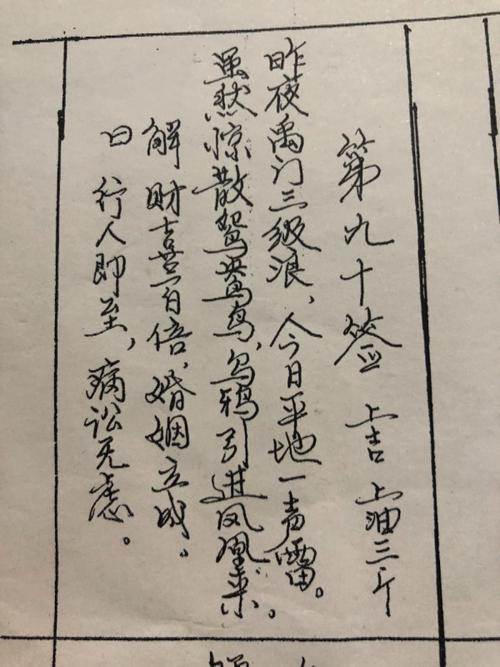 第九十签 上吉 上油三斤
昨夜禹门三级浪，今日平地一声雷。
虽然惊散鸳鸯鸟，乌鸦引进凤凰来。
解 财喜百倍，婚姻立成。
曰 行人即至，病讼无虑。